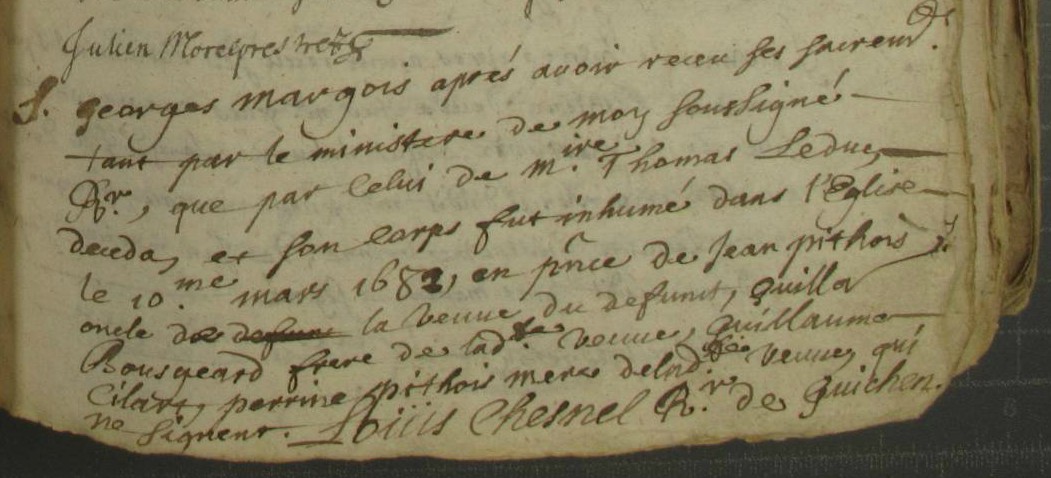 Julien Morel prestre
S. georges margois aprés avoir receu ses sacrem.
tant par le ministere de moy soussigné
Rr., que par celui de m.ire Thomas Leduc,
deceda, et son corps fut inhumé dans l'Eglise
le 10.me mars 1682, en pñce de Jean pithois
oncle de defunt la veuve du defunct, Guilla
Bousgeard frere de lad.te veuve, Guillaume
Cilart, perrine pithois mere de lad.te veuve, qui
ne signent. Loüis Chesnel R.r de Guichen.